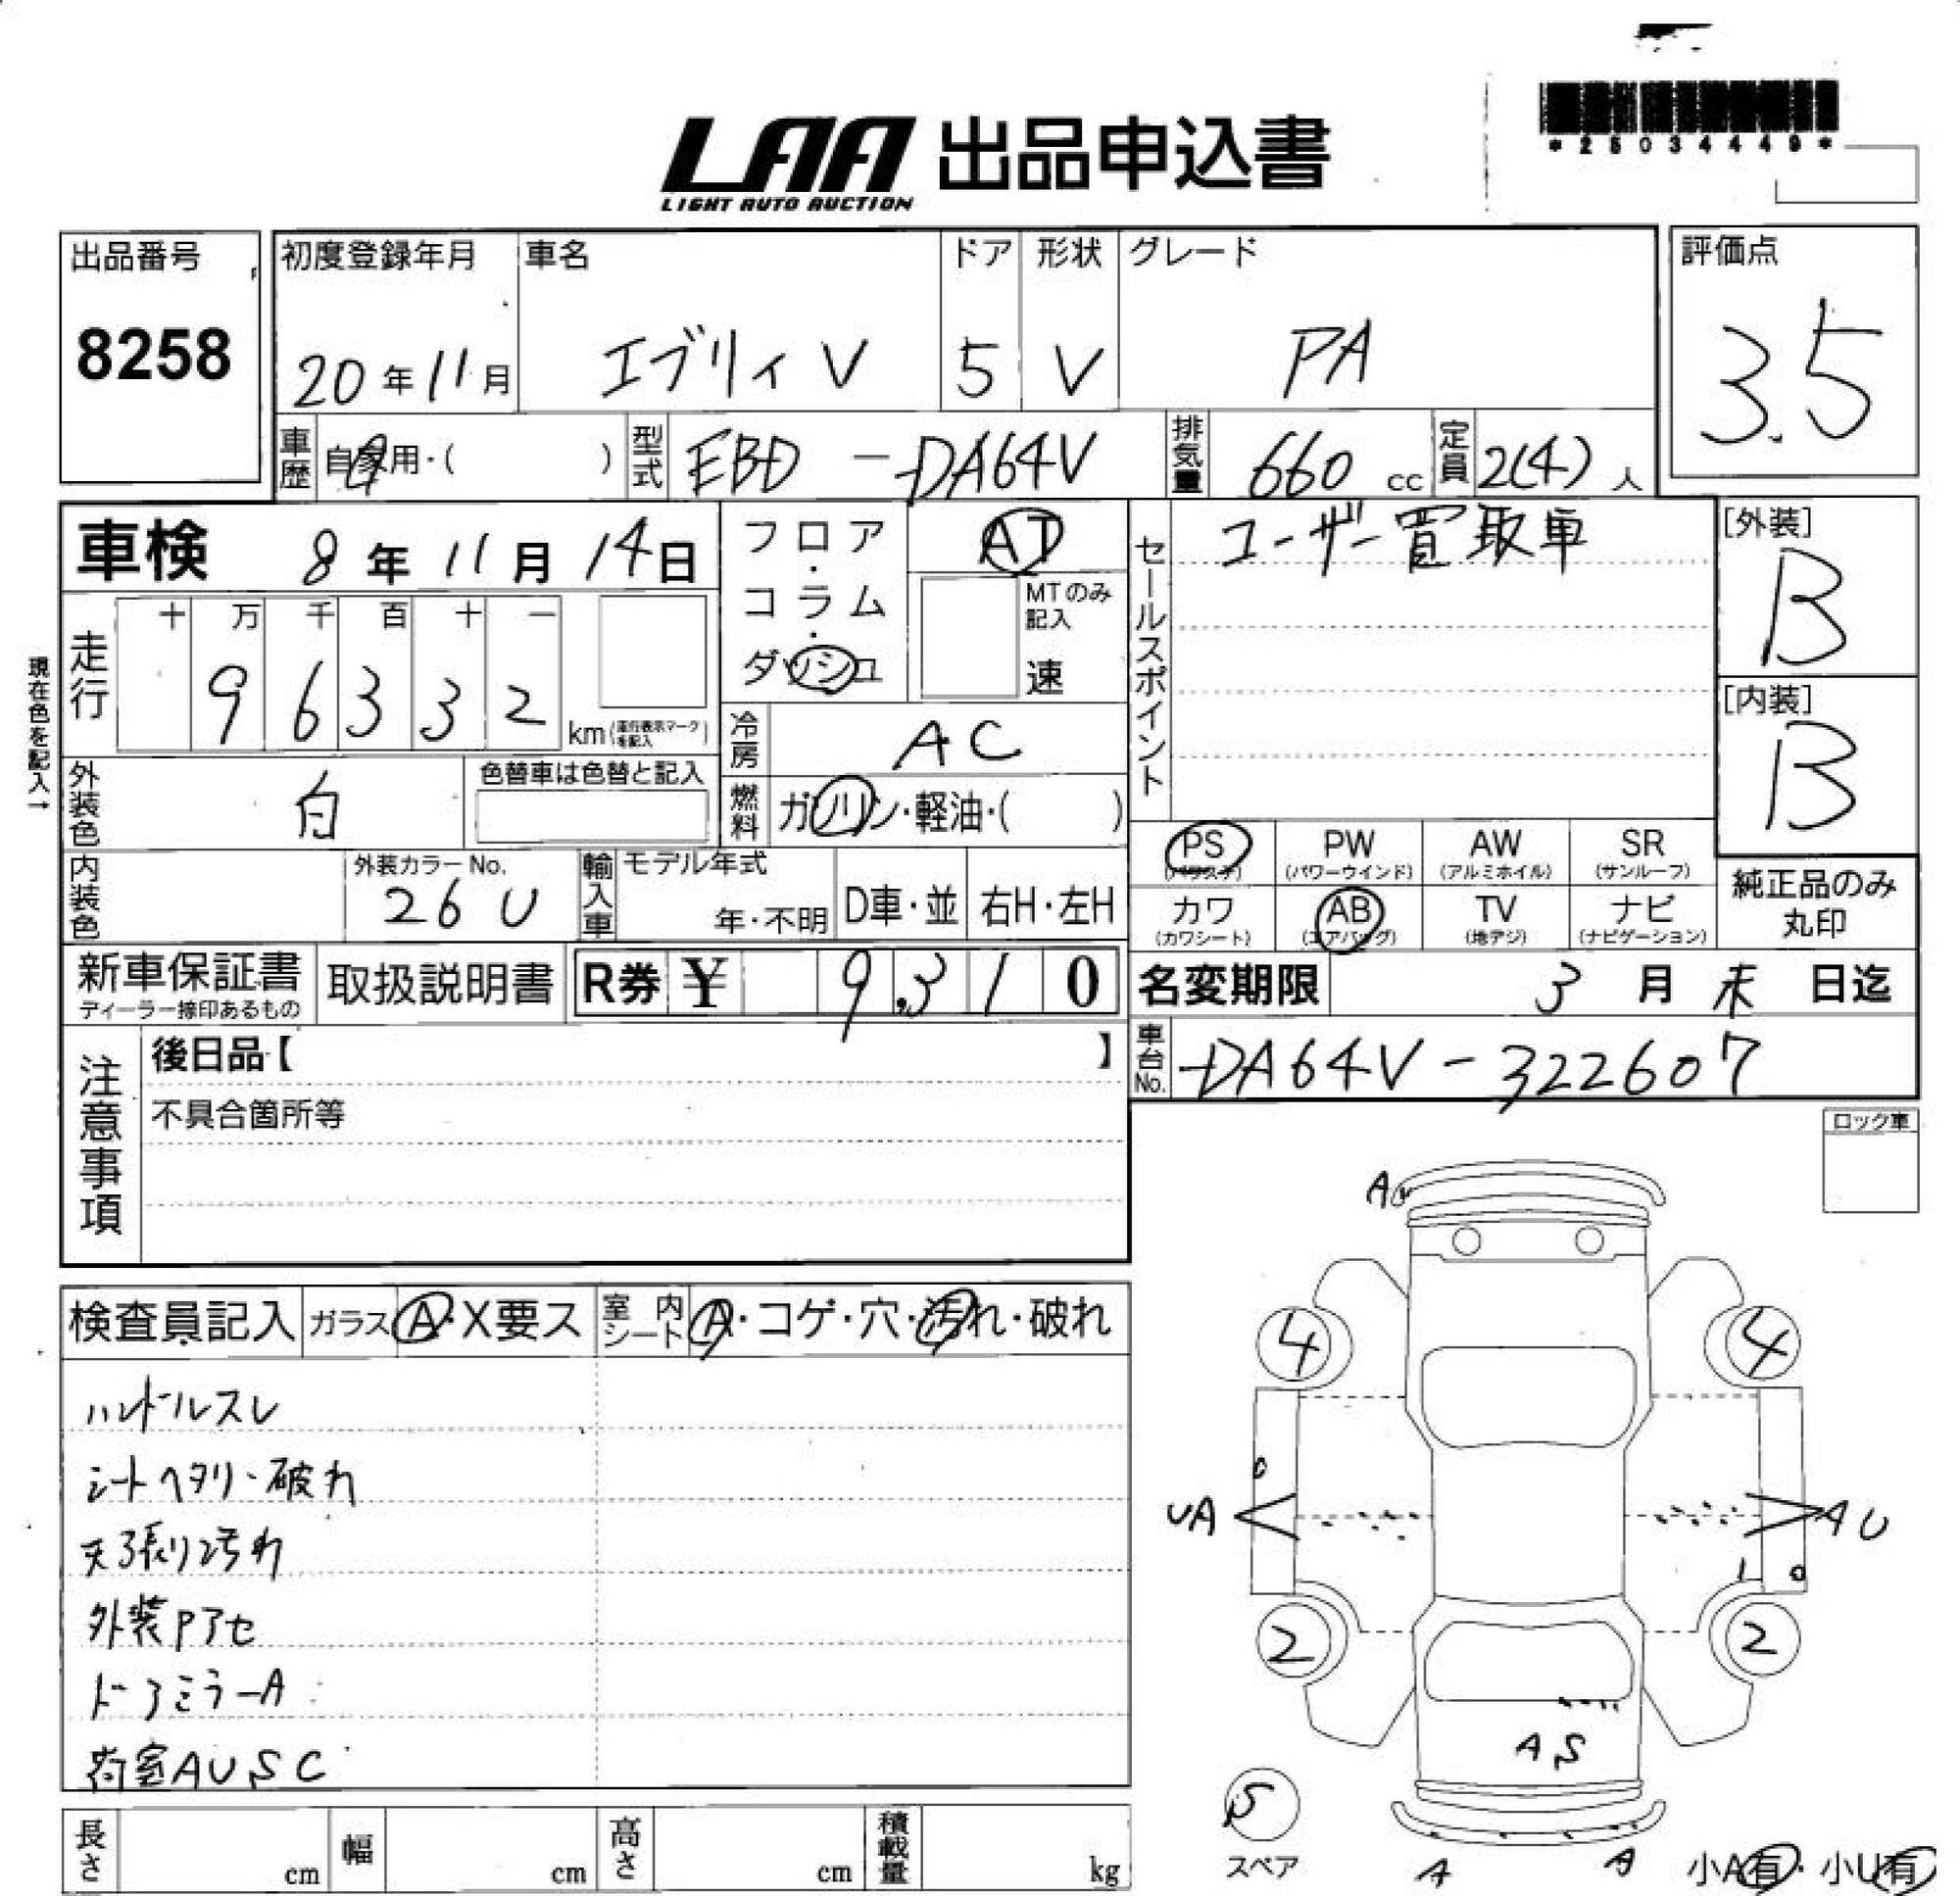 *25034449*
LAA 出品申込書
LIGHT AUTO AUCTION
出品番号 8258
初度登録年月 20年11月
車名 エブリィV
ドア 5
形状 V
グレード PA
評価点 3.5
車歴 自家用・( )
型式 EBD-DA64V
排気量 660 cc
定員 2(4)人
車検 8年11月14日
フロア・コラム・ダッシュ
AT
MTのみ記入
速
セールスポイント ユーザー買取車
[外装] B
[内装] B
現在色を記入→
走行 十 万 千 百 十 一
96332 km
(走行表示マークを記入)
冷房 AC
外装色 白
色替車は色替と記入
燃料 ガソリン・軽油・( )
内装色
外装カラーNo. 26U
輸入車
モデル年式
年・不明
D車・並
右H・左H
PS (パワステ)
PW (パワーウインド)
AW (アルミホイル)
SR (サンルーフ)
カワ (カワシート)
AB (エアバッグ)
TV (地デジ)
ナビ (ナビゲーション)
純正品のみ
丸印
新車保証書
ディーラー捺印あるもの
取扱説明書
R券 ¥ 9,310
名変期限 3月末日迄
車台No. DA64V-322607
注意事項
後日品【 】
不具合箇所等
ロック車
検査員記入
ガラス A・X要ス
室内シート A・コゲ・穴・汚れ・破れ
ハンドルスレ
シートヘタリ・破れ
天張り汚れ
外装Pアセ
ドアミラーA
荷室AUSC
A
4
4
UA
AU
2
2
AS
S
スペア
A
A
小A有・小U有
長さ cm
幅 cm
高さ cm
積載量 kg